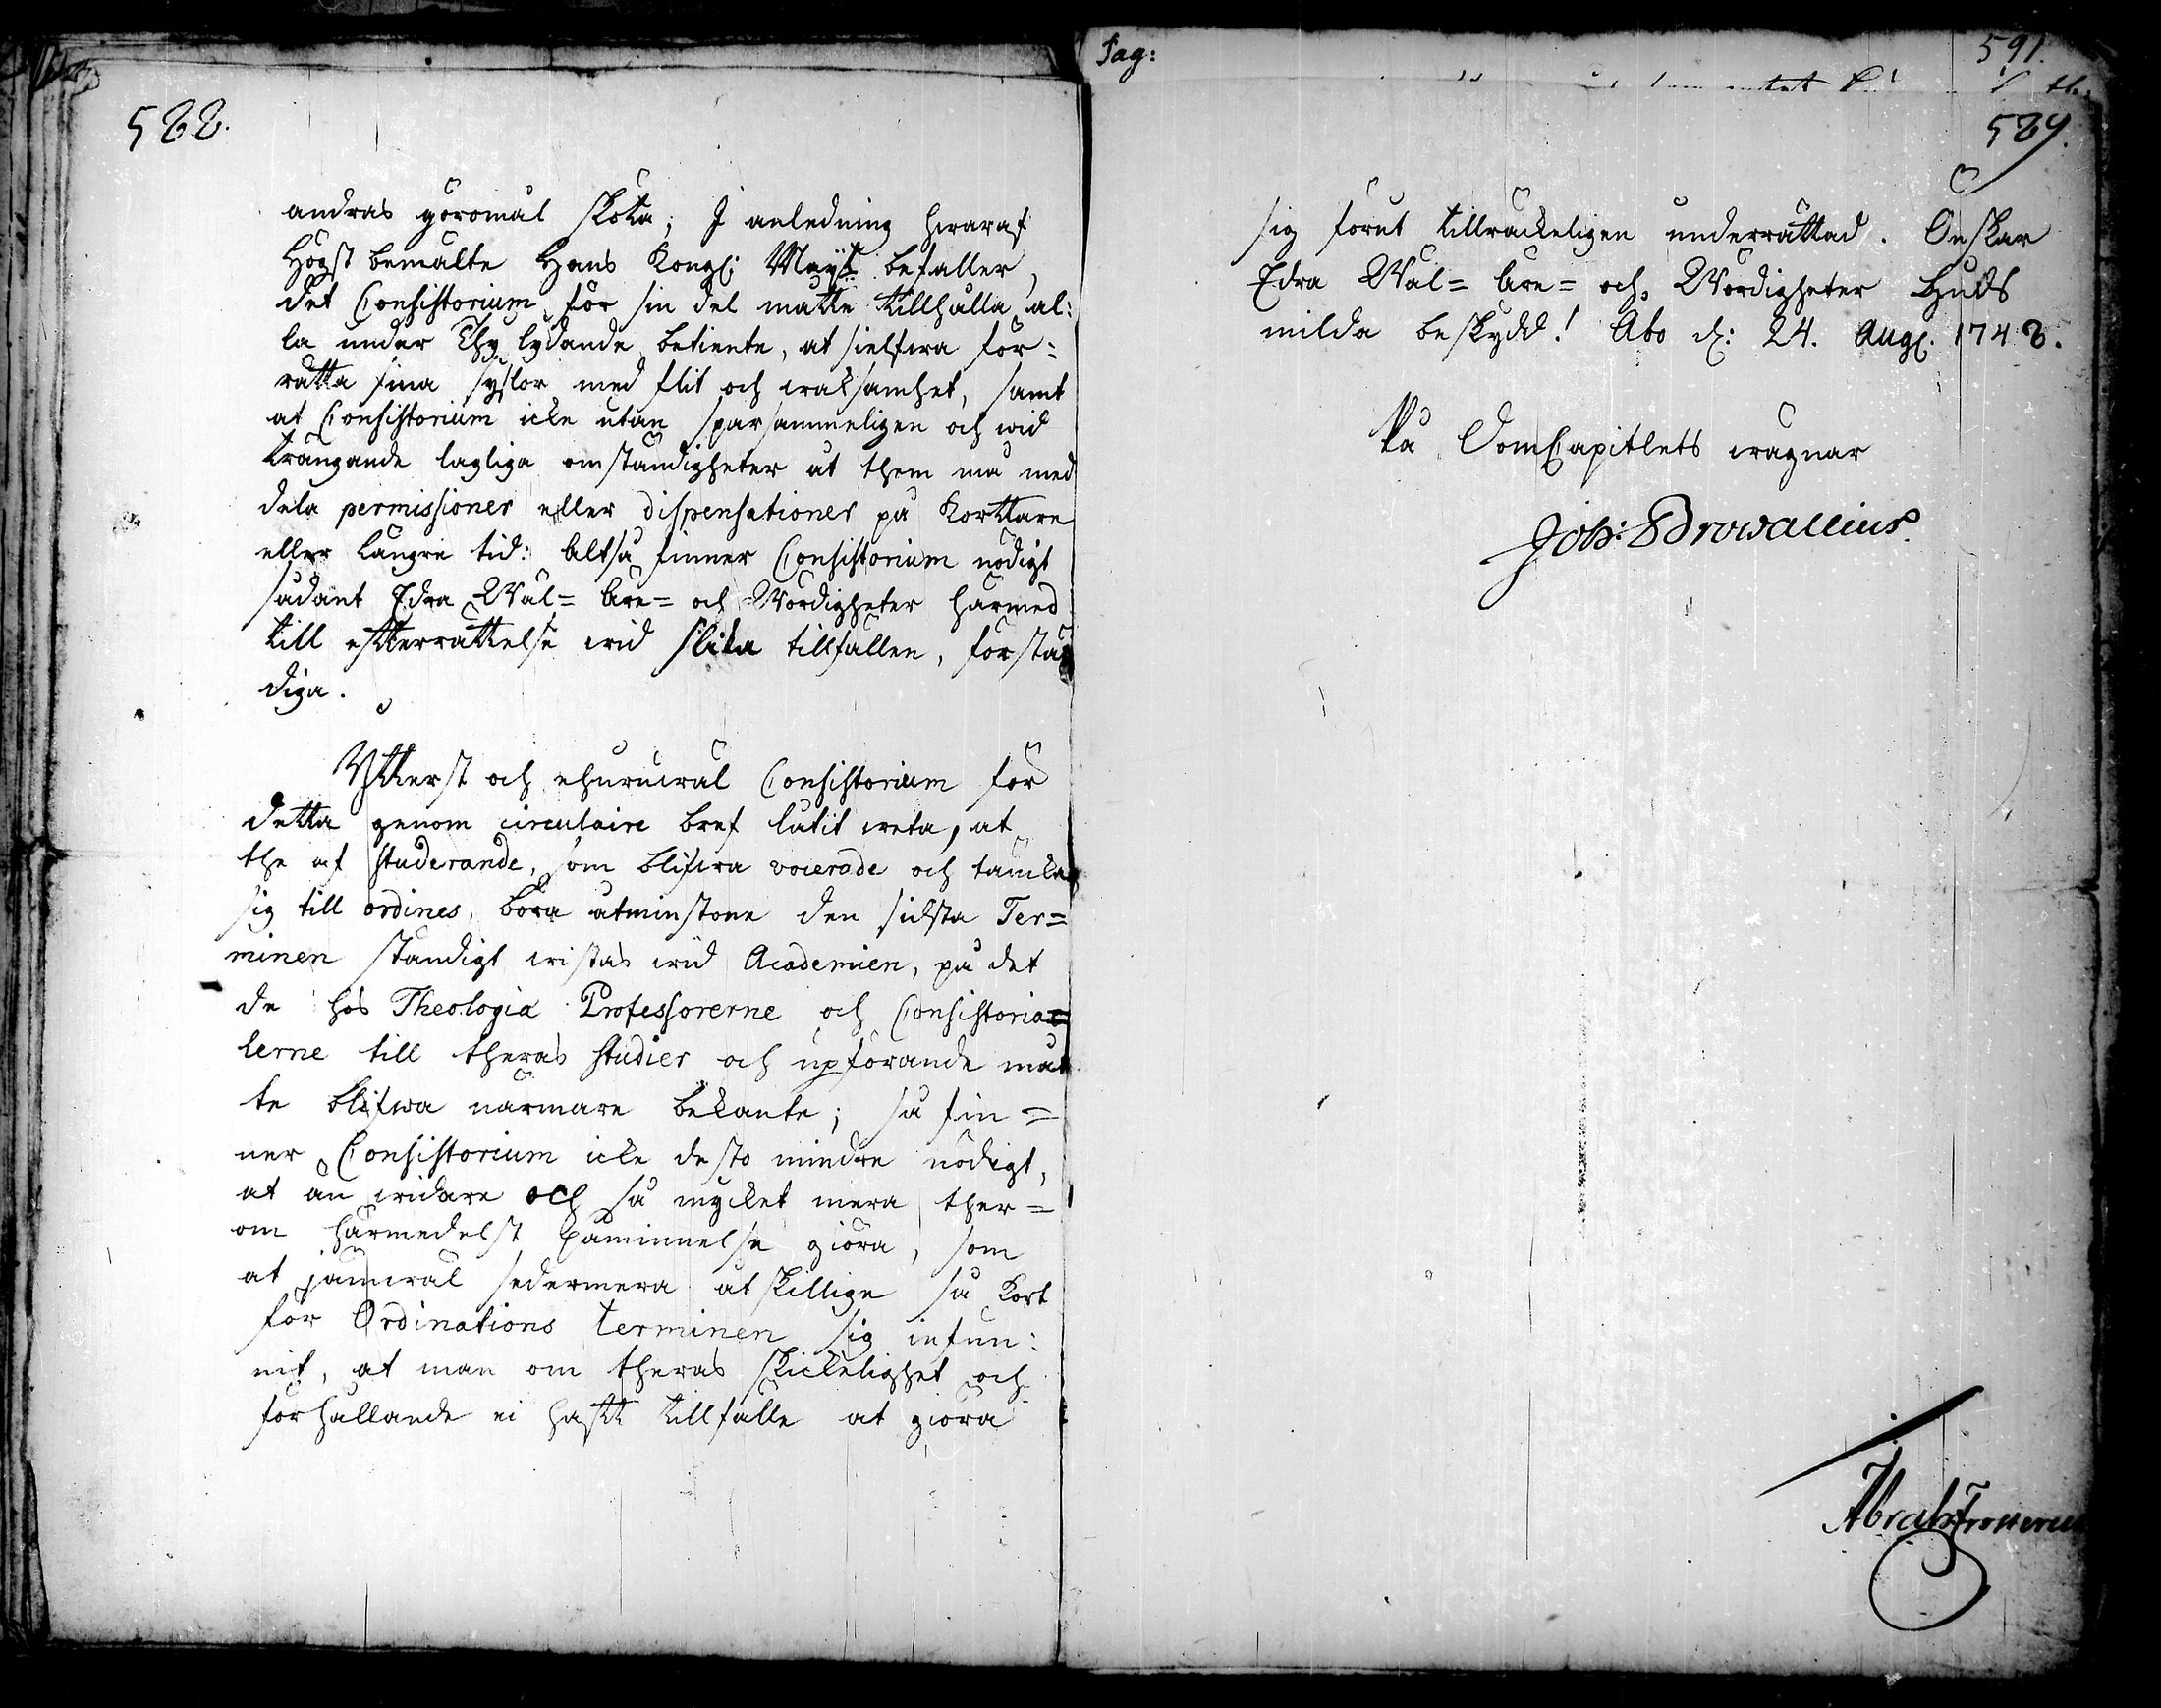 588.
andras göromål sköta; I anledning hwaraf
Högst bemälte Hans Kongl: Maijt befaller,
det Consistorium för sin del måtte tillhålla al:
la under Thy lydande betiente, at sielfwa för=
rätta sina syslor med flit och waksamhet, samt
at Consistorium icke utan sparsammeligen och wid
trängande lagliga omständigheter åt them må med
dela permissioner eller dispensationer på kortare
eller längre tid: Altså finner Consistorium nödigt
sådant Edra Wäl= Äre= och Wördigheter härmed
till efterrättelse wid slika tillfällen, förstän
diga.
Ytterst och ehuruwäl Consistorium för
detta genom circulaire bref låtit weta, at
the af studerande, som blifwa vocerade och tänka
sig till ordines, böra åtminstone den sidsta Ter=
minen ständigt wistas wid Academien, på det
de hos Theologiæ Professorerne och Consistoria=
lerne till theras studier och upförande måt
te blifwa närmare bekante; så fin=
ner Consistorium icke desto mindre nödigt,
at än widare och så mycket mera ther=
om härmedelst påminnelse giöra, som
at jämwäl sedermera åtskillige så kort
för Ordinations terminen sig infun:
nit, at man om theras skickelighet och
förhållande ei haft tillfälle at giöra
Pag:
591.
589.
sig förut tillräckeligen underrättad. Önskar
Edra Wäl= Äre= och Wördigheter Guds
milda beskydd! Åbo d: 24. Aug: 1748.
På DomCapitlets wägnar
Joh: Browallius.
Abrah: